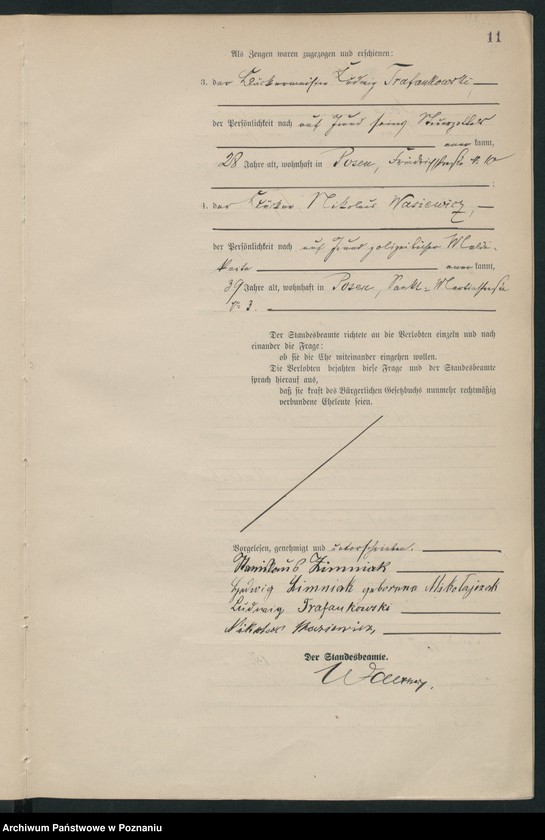 11
Als Zeugen waren zugezogen und erschienen:
3. der Bäckermeister Ludwig Trafankowski,
der Persönlichkeit nach auf Grund seines Steuerzettels
kannt,
28 Jahre alt, wohnhaft in Posen, Friedrichstraße N. 10
;
4. der Bäcker Nikolaus Wasiewicz,
der Persönlichkeit nach auf Grund polizeilicher Melde-
karte kannt,
39 Jahre alt, wohnhaft in Posen, Sankt-Martinstraße
No 3.
Der Standesbeamte richtete an die Verlobten einzeln und nach
einander die Frage:
ob sie die Ehe miteinander eingehen wollen.
Die Verlobten bejahten diese Frage und der Standesbeamte
sprach hierauf aus,
daß sie kraft des Bürgerlichen Gesetzbuchs nunmehr rechtmäßig
verbundene Eheleute seien.
Vorgelesen, genehmigt und unterschrieben.
Stanislaus Zimniak
Hedwig Zimniak geborene Mikołajczak
Ludwig Trafankowski
Nikolaus Wasiewicz,
Der Standesbeamte.
Archiwum Państwowe w Poznaniu